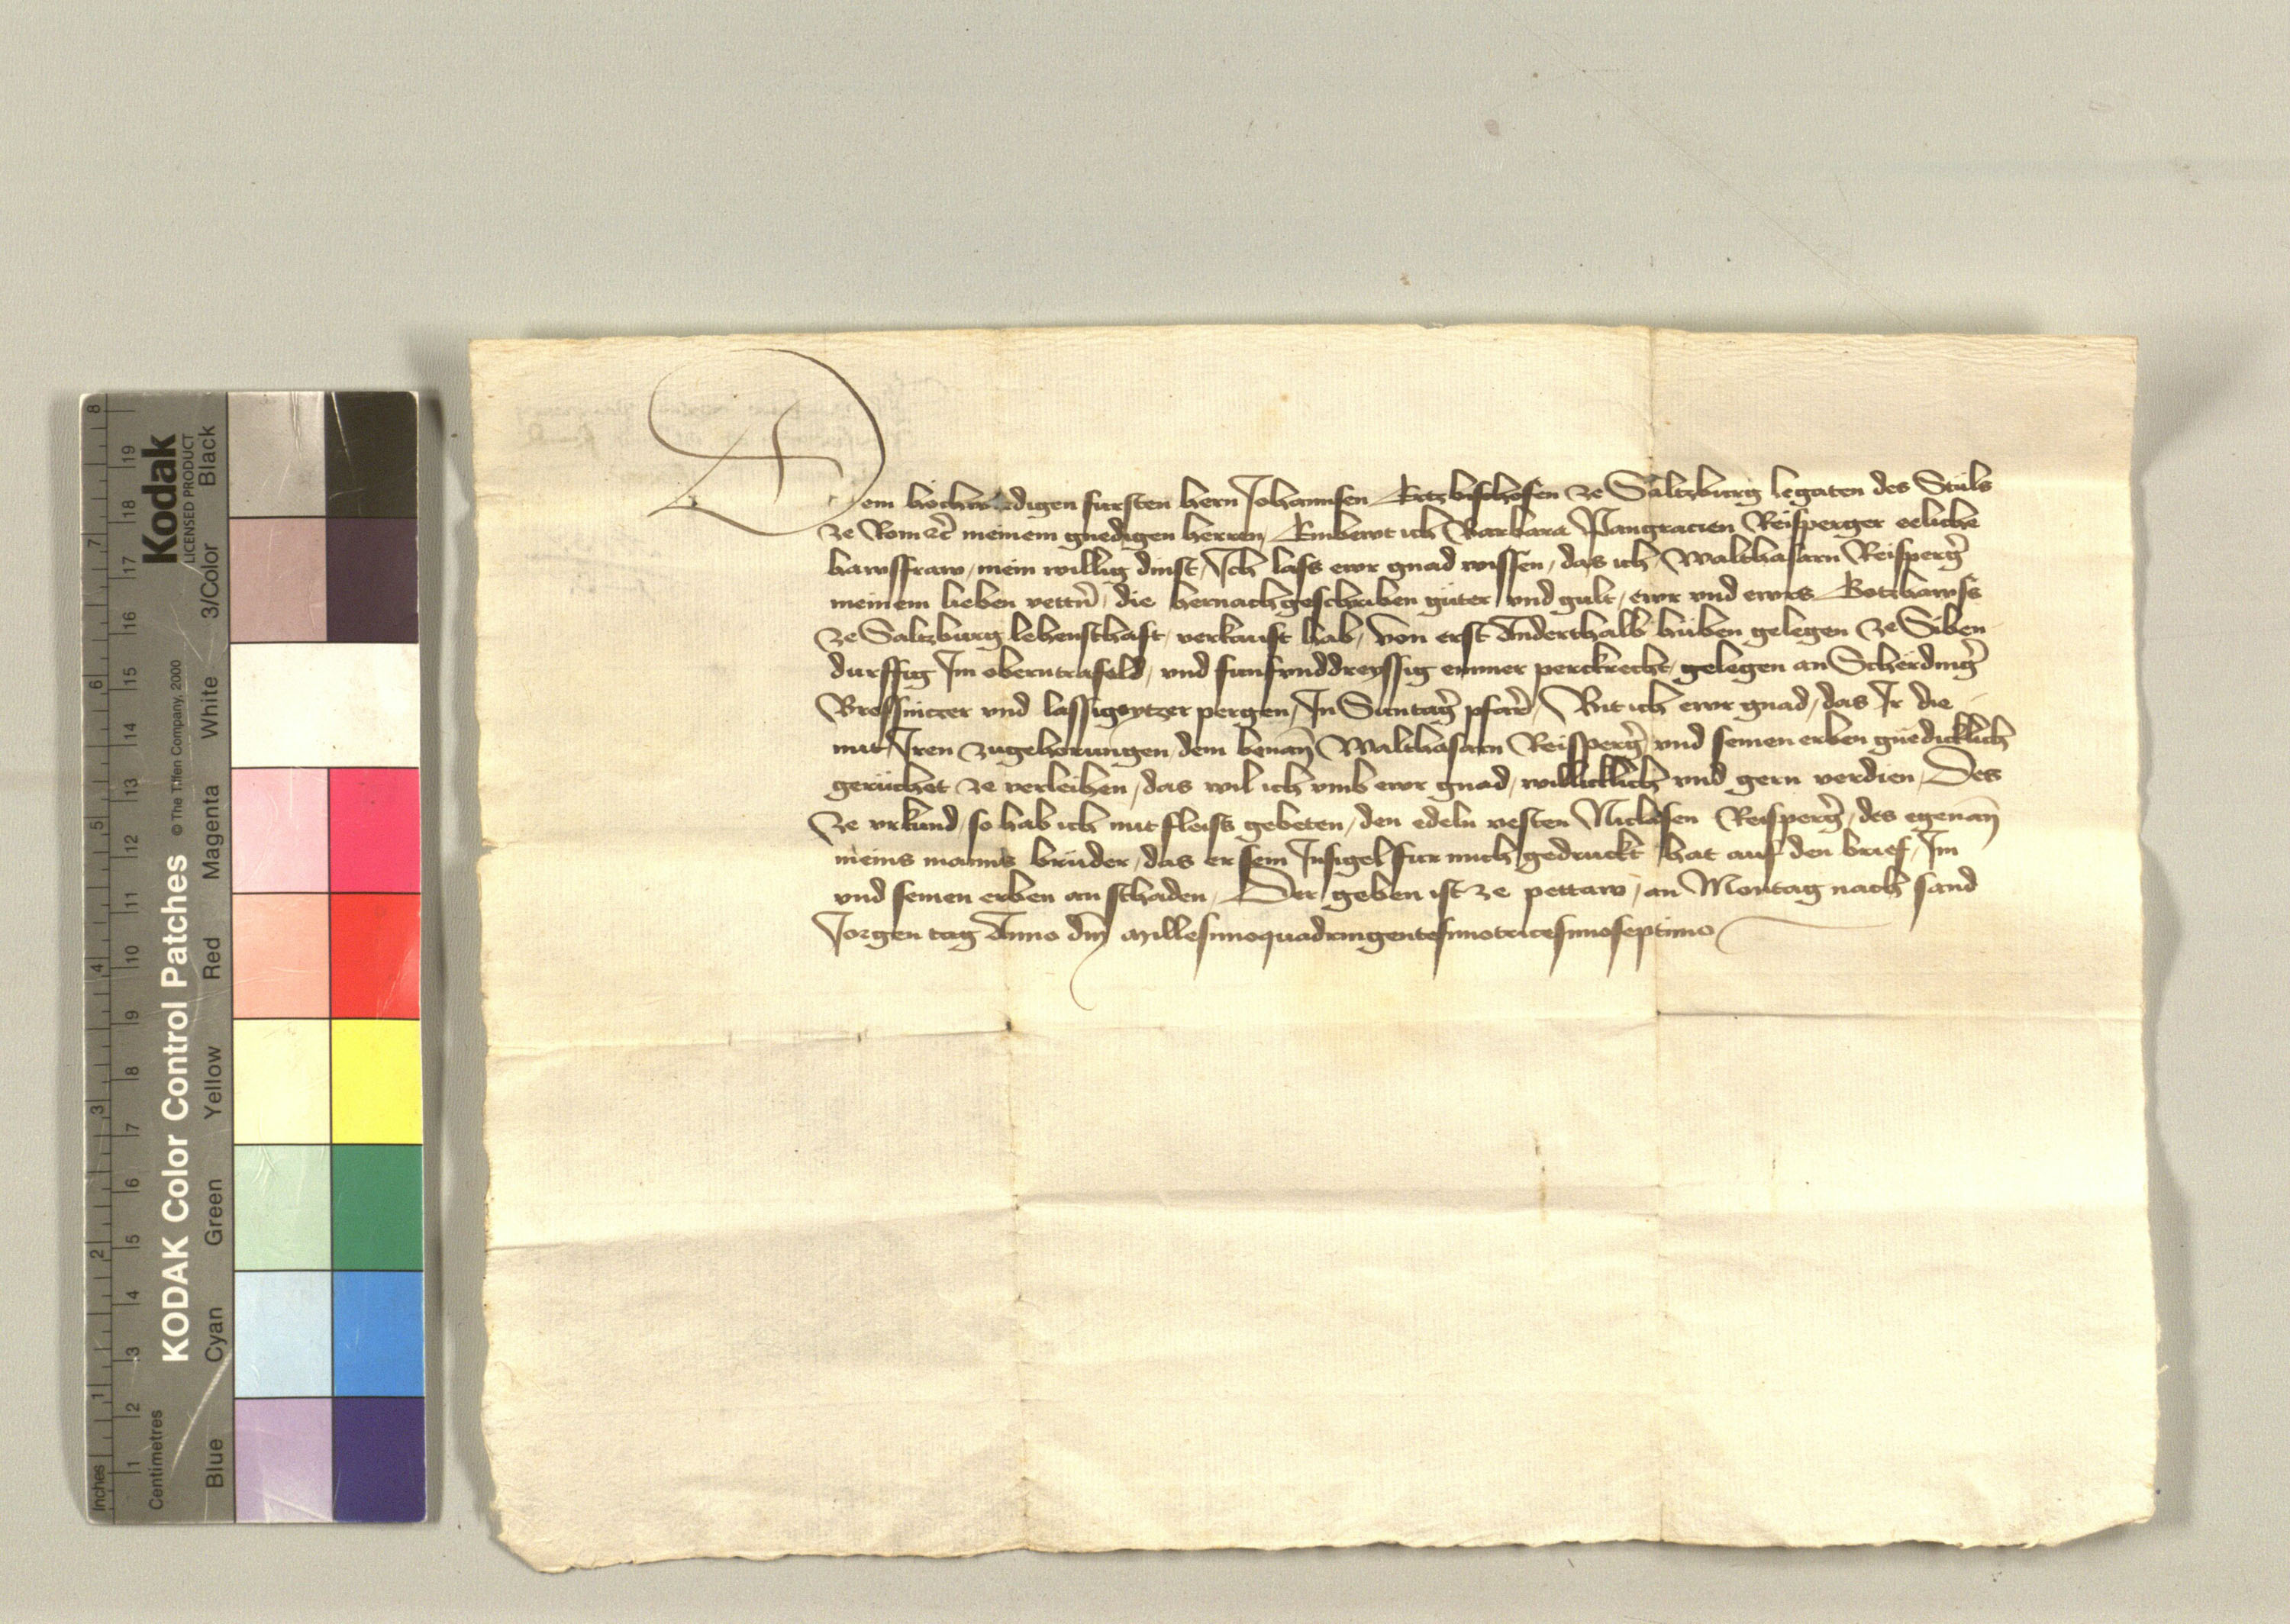 Dem hochwirdigen fursten hern Johannsen Ertzbischofen ze Saltzburg legaten des Stuls
ze Rom etc̃ meinem gnedigen herren / Embewt ich Barbara Pangraczen Reisperger eeliche
hawsfraw / mein willig dinst / Ich lass ewr gnad wissen / das ich Walthasarn Reisperg̃
meinem lieben vettñ / die hernachgeschriben guter vnd gult / ewr vnd ewrs Gotzhawss
ze Saltzburg lehenschaft / verkauft hab / Von erst Anderthalb huben gelegen ze Siben
durffing Im oberntrafeld / vnd funfvnddreyssig emmer perckrecht gelegen an Scherding̃
Bressnitzer vnd lassigoytzer pergen / In Suntag̃ pfarr̃ / Bit ich ewr gnad / das Ir die
mit Iren zugehorungen dem benan̄ Walthasarn Reisperg̃ vnd seinen erben gnedicklich
geruchet ze verleihen / das wil ich vmb ewr gnad / willicklich vnd gern verdien / Des
ze vrkund / so hab ich mit fleiss gebeten / den edeln vesten Niclasen Reisperg̃ / des egenan̄
meins manns bruder / das er sein Insigel fur mich gedruckt hat auf den brief / Im
vnd seinen erben an schaden / Der geben ist ze pettaw / an Montag nach sand
Jorgen tag Anno dm̄ Millesimoquadringentesimotricesimoseptimo
KODAK Color Control Patches
Kodak
LICENSED PRODUCT
© The Tiffen Company, 2000
Inches 1 2 3 4 5 6 7 8
Centimetres 1 2 3 4 5 6 7 8 9 10 11 12 13 14 15 16 17 18 19
Blue Cyan Green Yellow Red Magenta White 3/Color Black